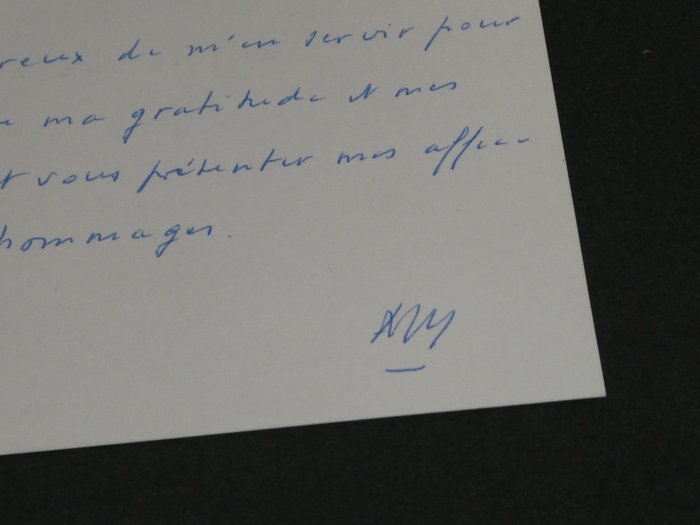 reux de m'en servir pour
e ma gratitude et mes
et vous présenter mes affec-
hommages.